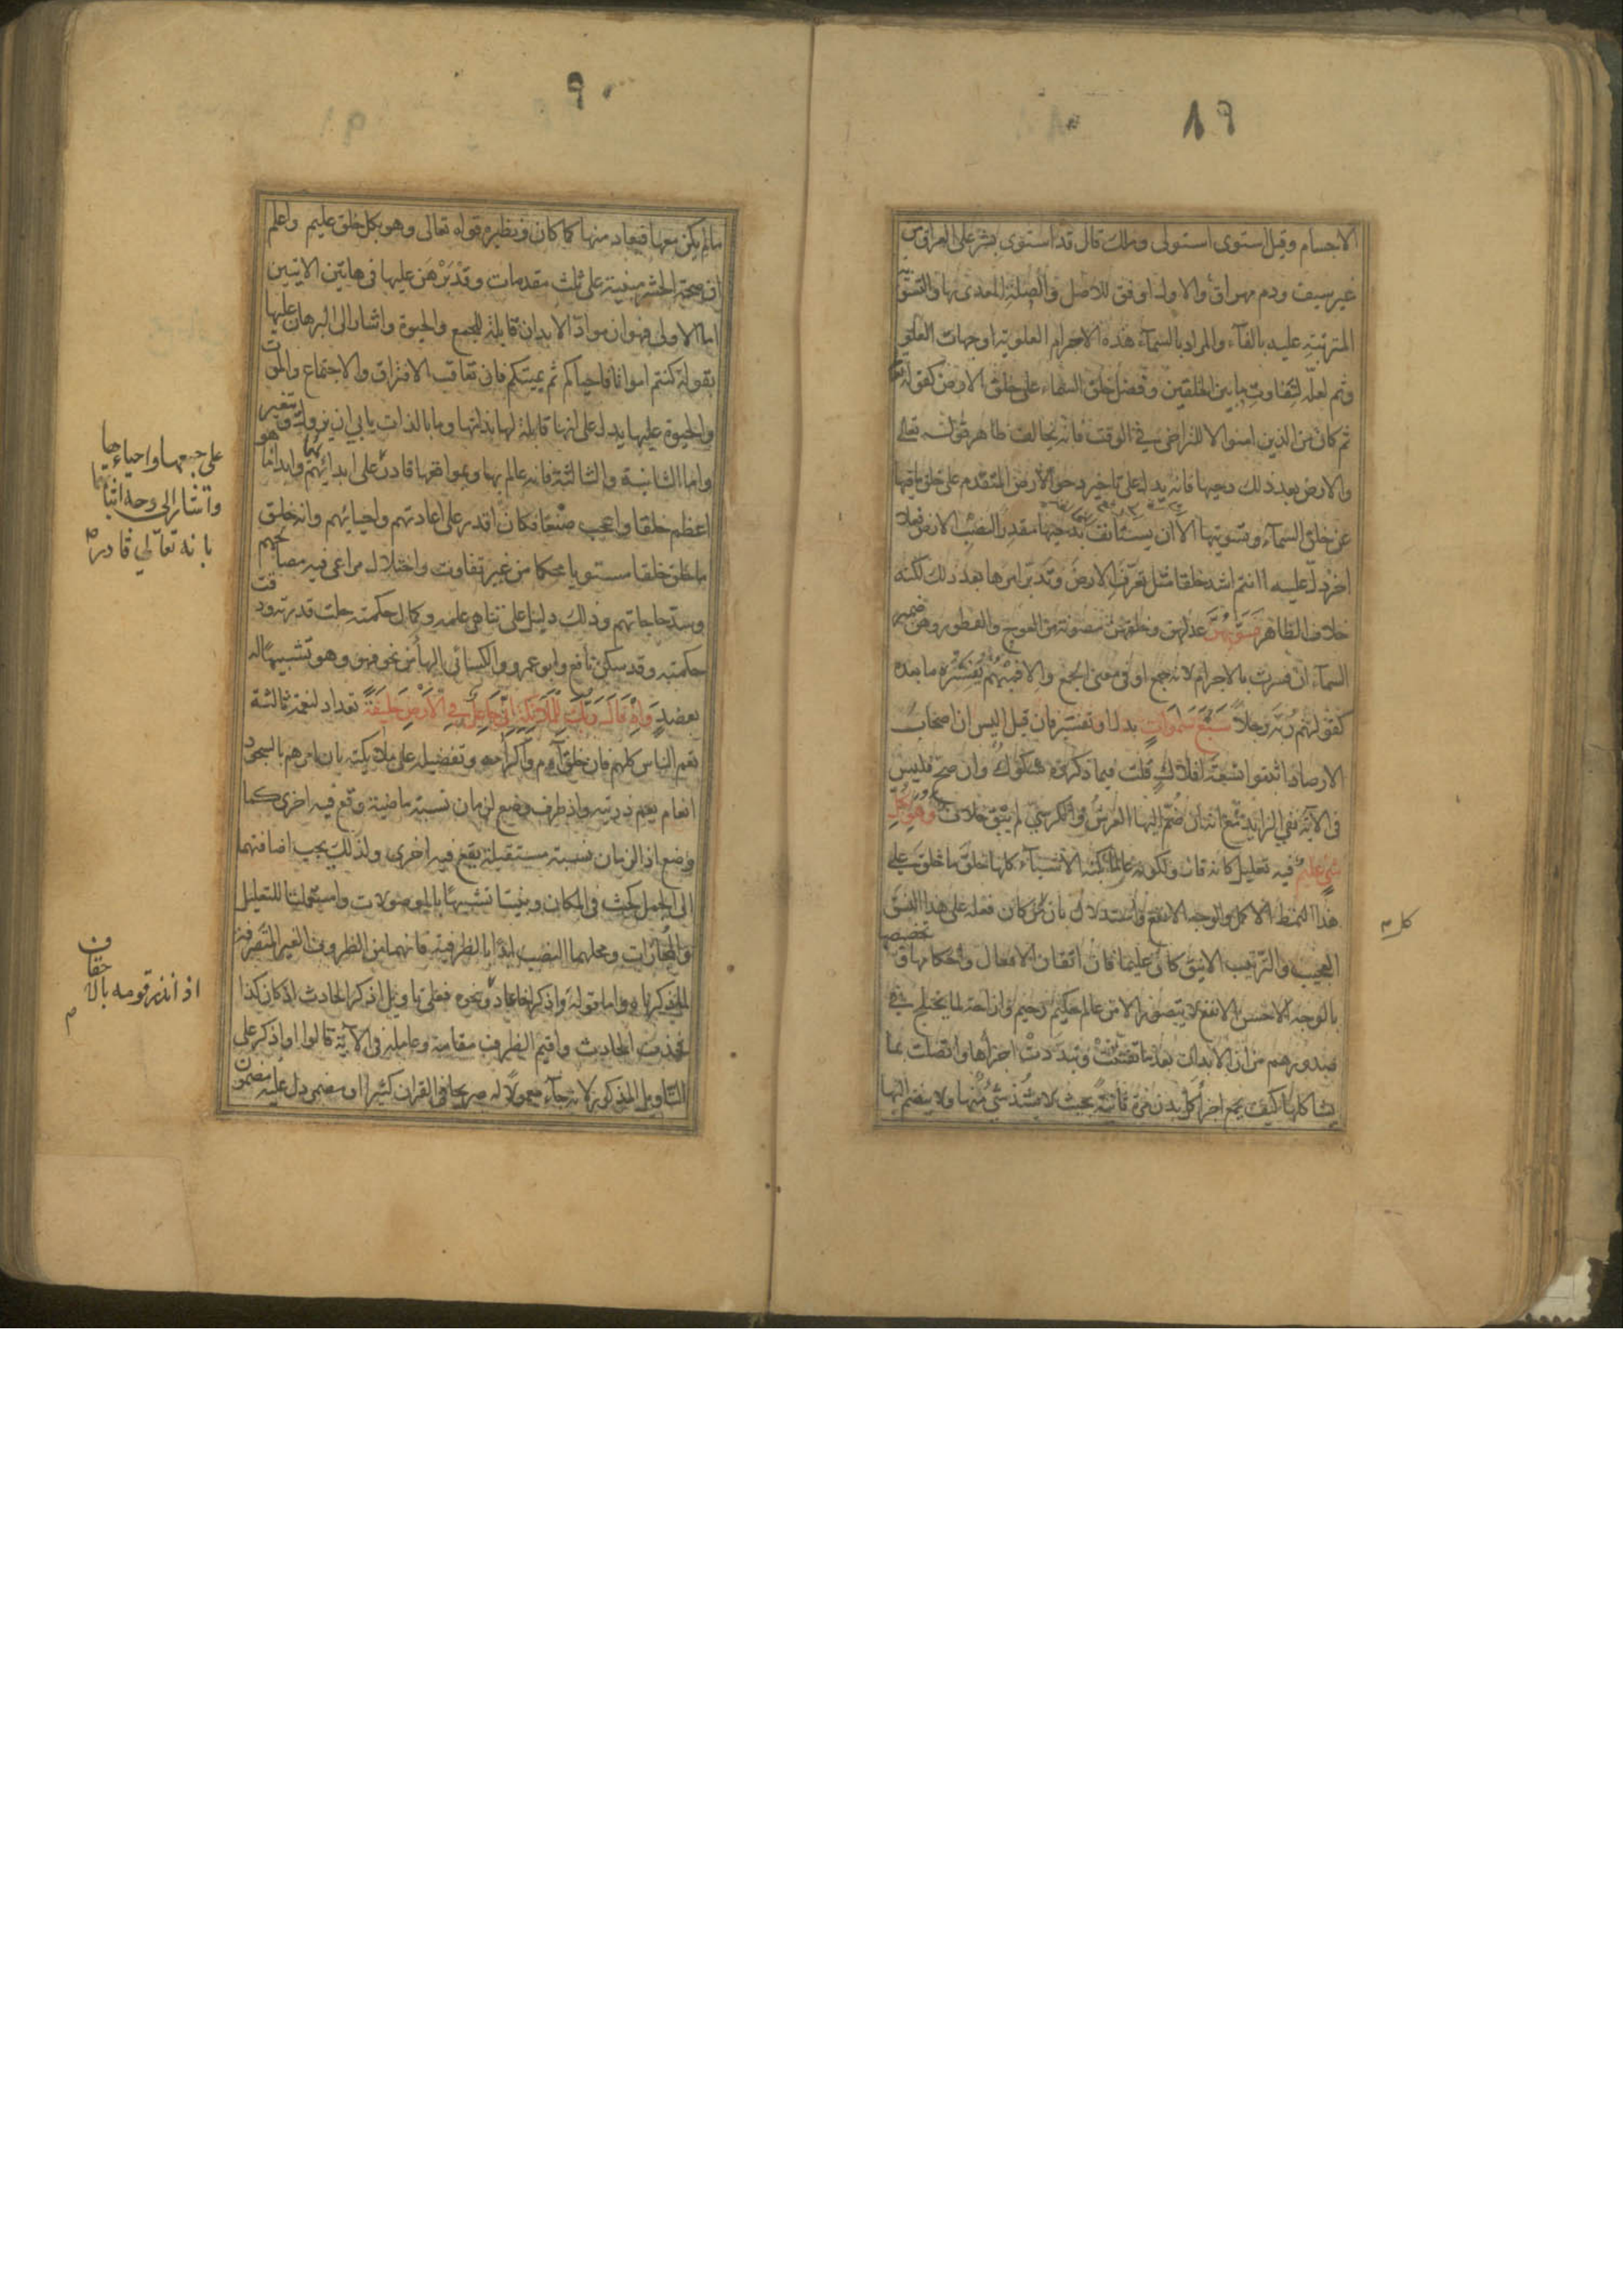 ٨٩
الاجسام وقيل استوى استولى وملك قال قد استوى بشر على العراق من
غير سيف ودم مهراق والاول اوفق للاصل والصلة المعدى بها والتسوية
المترتبة عليه بالفآء والمراد بالسمآء هذه الاجرام العلوية او جهات العلو
وثم لعله لتفاوت ما بين الخلقين وفضل خلق السماء على خلق الارض كقوله تعا
ثم كان من الذين امنوا لا للتراخى فى الوقت فانه يخالف ظاهر قوله تعالى
والارض بعد ذلك دحيها فانه يدل على تاخير دحو الارض المتقدم على خلق ما فيها
عن خلق السمآء وتسويتها الا ان يستانف بدحيها مقدرا لنصب الارض فعلا
اخر دل عليه اانتم اشد خلقا مثل تعرف الارض وتدبر امرها بعد ذلك لكنه
خلاف الظاهر فسويهن عدلهن وخلقهن مصونة من العوج والفطور وهن ضمير
السمآء ان فسرت بالاجرام لانه جمع او فى معنى الجمع والا فمبهم يفسره ما بعده
كقولهم ربه رجلا سبع سموات بدل او تفسير فان قيل اليس ان اصحاب
الارصاد اثبتوا تسعة افلاك قلت فيما ذكروه شكوك وان صح فليس
فى الآية نفى الزايد مع انه ان ضم اليها العرش والكرسى لم يبق خلاف وهو بكل
شئ عليم فيه تعليل كانه قال ولكونه عالما بكنه الاشيآء كلها خلق ما خلق على
هذا النمط الاكمل والوجه الانفع واستدلال بان من كان فعله على هذا النسق
العجيب والترتيب الانيق كان عليما فان اتقان الافعال واحكامها وتخصيصها
بالوجه الاحسن الانفع لا يتصور الا من عالم حكيم رحيم وازاحة لما يختلج فى
صدورهم من ان الابدان بعد ما تفتتت وتبددت اجزاها واتصلت بما
يشاكلها كيف يجمع اجزا كل بدن مرة ثانية بحيث لا يشذ شئ منها ولا ينضم اليها
٩٠
ما لم يكن معها فيعاد منها كما كان ونظيره قوله تعالى وهو بكل خلق عليم واعلم
ان صحة الحشر مبنية على ثلث مقدمات وقد برهن عليها فى هاتين الايتين
اما الاولى فهو ان مواد الابدان قابلة للجمع والحيوة واشار الى البرهان عليها
بقوله كنتم امواتا فاحياكم ثم يميتكم فان تعاقب الافتراق والاجتماع والموت
والحيوة عليها يدل على انها قابلة لها بذاتها وما بالذات يابى ان يزول ويتغير
واما الثانية والثالثة فانه عالم بها وبمواقعها قادر على ابدائهم وابدا ما هو
اعظم خلقا واعجب صنعا فكان اقدر على اعادتهم واحيائهم وانه خلق
ما خلق خلقا مستويا محكما من غير تفاوت واختلال مراعى فيه مصالحهم
وسد حاجاتهم وذلك دليل على تناهى علمه وكمال حكمته جلت قدرته ودقت
حكمته وقد سكن نافع وابو عمرو والكسائى الهاء من نحو فهو وهو تشبيها له
بعضد واذ قال ربك للملائكة انى جاعل فى الارض خليفة تعداد لنعمة ثالثة
تعم الناس كلهم فان خلق آدم واكرامه وتفضيله على ملائكته بان امرهم بالسجود
انعام يعم ذريته واذ ظرف وضع لزمان نسبة ماضية وقع فيه اخرى كما
وضع اذا لزمان نسبة مستقبلة يقع فيه اخرى ولذلك يجب اضافتهما
الى الجمل كحيث فى المكان وبنيتا تشبيها بالموصولات واستعملتا للتعليل
والمجازات ومحلهما النصب ابدا بالظرفية فانهما من الظروف الغير المتصرفة
لما ذكرناه واما قوله واذكر اخا عاد ونحوه فعلى تاويل اذكر الحادث اذ كان كذا
فحذف الحادث واقيم الظرف مقامه وعامله فى الآية قالوا او اذكر على
التاويل المذكور لانه جآء معمولا له صريحا فى القران كثيرا او مضمر دل عليه مضمون
على جمعها واحياءها
واشار الى وجه اثباتها
بانه تعالى قادر
اذ انذر قومه بالاحقاف